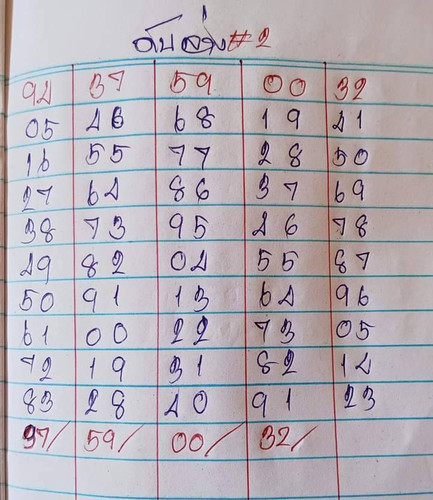 ดับล่าง #2
94 37 59 00 32
05 46 68 19 41
16 55 77 28 50
27 64 86 37 69
38 73 95 46 78
49 82 04 55 87
50 91 13 64 96
61 00 22 73 05
72 19 31 82 14
83 28 40 91 23
37/ 59/ 00/ 32/